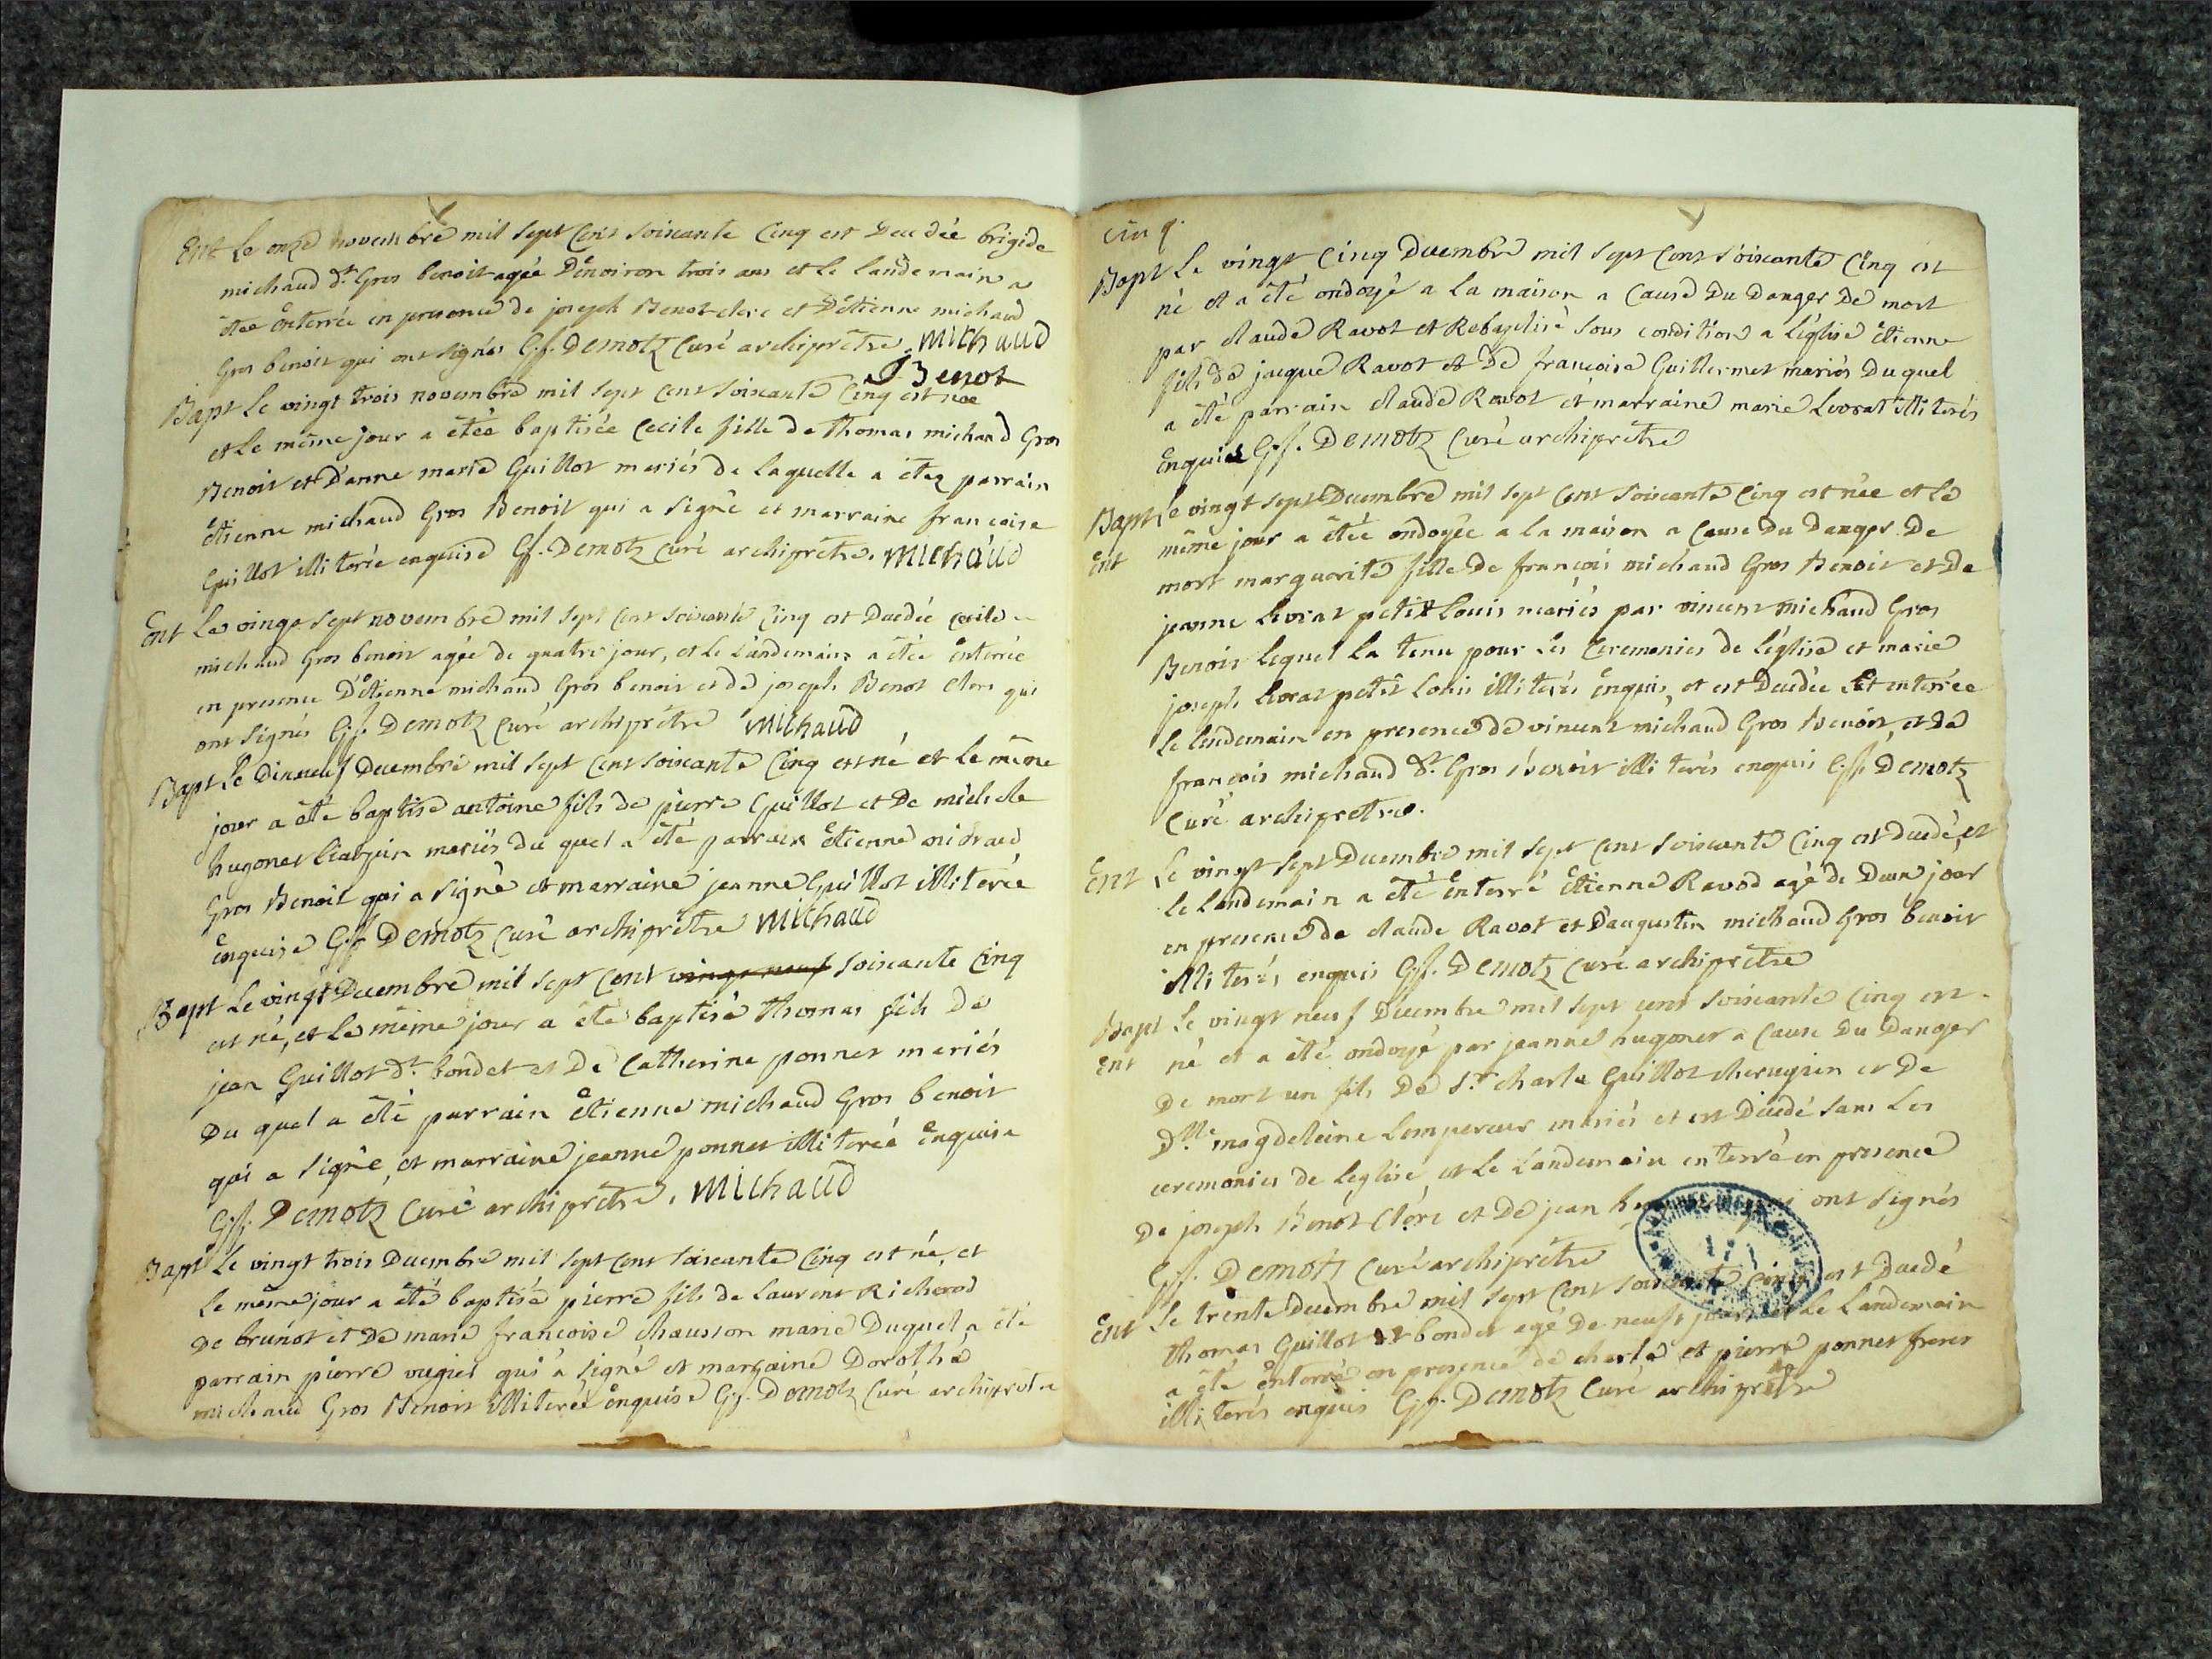 Ent Le onze novembre mil sept cens soixante cinq est decedée brigide
michaud dt Gros benoit agée D'environ trois ans et le landemain a
étée enterrée en presence de joseph Benot clerc et D'étienne michaud
Gros benoit qui ont signés Gf. Demotz curé archiprêtre. michaud
Benot
Bapt Le vingt trois novembre mil sept cent soixante cinq est née
et le même jour a étée baptisée Cecile fille de Thomas michaud Gros
Benoit et D'anne marie Guillot mariés de laquelle a étez parrain
étienne michaud Gros Benoit qui a signé et marraine françoise
Guillot illiterée enquise Gf. Demotz curé archiprêtre. michaud
Ent Le vingt sept novembre mil sept cent soixante cinq est decedée cecile
michaud Gros benoit agée de quatre jour, et le landemain a étée enterrée
en presence D'étienne michaud Gros benoit et de joseph Benot clerc qui
ont signés Gf. Demotz curé archiprêtre michaud
Bapt Le dixneuf decembre mil sept cens soixante cinq est né et le même
jour a été baptisé antoine fils de pierre Guillot et De michele
hugonet mariés du quel a été parrain étienne michaud
Gros Benoit qui a signé et marraine jeanne Guillot illiterée
enquise Gf Demotz curé archiprêtre michaud
Bapt Le vingt Decembre mil sept cent vingt neuf soixante cinq
est né, et le même jour a été baptisé thomas fils de
jean Guillot dt bondet et De Catherine ponnet mariés
Du quel a été parrain étienne michaud Gros benoit
qui a signé, et marraine jeanne ponnet illiterée enquise
Gf. Demotz curé archiprêtre. michaud
Bapt Le vingt trois Decembre mil sept cens soixante cinq est né, et
le même jour a été baptisé pierre fils de laurent Richerod
De brunot et De marie françoise chausson marie Duquel a été
parrain pierre vugiet qui a signé et marraine Dorothé
michaud Gros Benoit illiterée enquise Gf. Demotz curé archiprêtre
cinq.
Bapt Le vingt cinq Decembre mil sept cent soixante cinq est
né et a été ondoyé a la maison a cause Du danger De mort
par claude Ravot et Rebaptisé sous condition a l'église étienne
fils de jacque Ravot et De françoise Guillermet mariés Duquel
a été parrain claude Ravot et marraine marie Livrat illiterés
enquis Gf. Demotz curé archiprêtre
Bapt Le vingt sept Decembre mil sept cent soixante cinq est née et le
Ent même jour a étée ondoyée a la maison a cause Du Danger De
mort marguerite fille De françois michaud Gros Benoit et De
jeanne Livrat petit Louis mariés par vincent michaud Gros
Benoit lequel la tenu pour les ceremonies de l'église et marie
joseph Livrat petit Louis illiterés enquis, et est Decedée et enterrée
le lendemain en presence de vincent michaud Gros Benoit, et De
françois michaud dt. Gros Benoit illiterés enquis Gf. Demotz
curé archiprêtre.
Ent Le vingt sept Decembre mil sept cens soixante cinq est decedé, et
le landemain a été enterré étienne Ravod agé de Deux jour
en presence de claude Ravot et D'augustin michaud Gros benoit
illiterés enquis Gf. Demotz curé archiprêtre
Bapt Le vingt neuf Decembre mil sept cent soixante cinq est
Ent né et a été ondoyé par jeanne hugonet a cause Du Danger
De mort un fils De Sr. charle Guillot et De
Dlle. magdeleine Lempereur mariés et est Decedé sans les
ceremonies de l'eglise et le landemain enterré en presence
De joseph Benot clerc et De jean qui ont signés
Gf. Demotz curé archiprêtre
Ent Le trente Decembre mil sept cent soixante cinq est Decedé
thomas Guillot dt bondet agé De neuf jour et le landemain
a été enterré en presence de charle et pierre ponnet freres
illiterés enquis Gf. Demotz curé archiprêtre